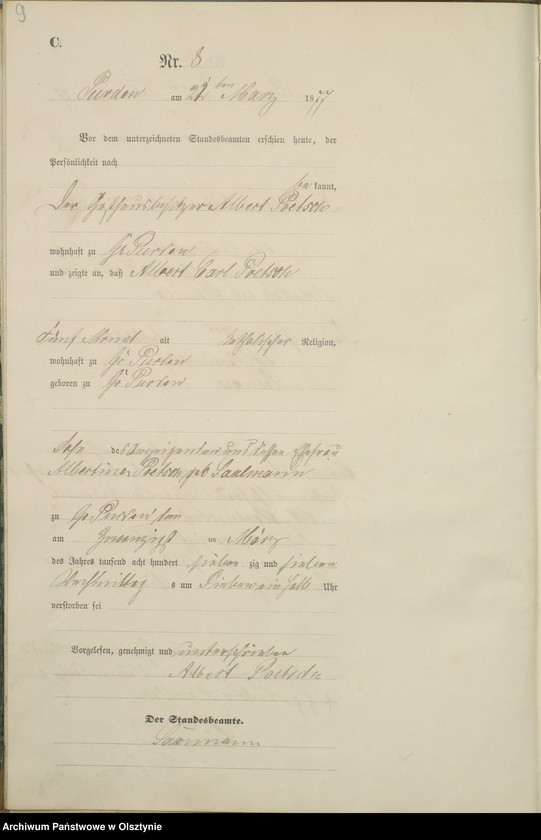 9
C.
Nr. 8
Purden am 22ten März 1877
Vor dem unterzeichneten Standesbeamten erschien heute, der
Persönlichkeit nach
be kannt,
Der Gasthausbesitzer Albert Poetsch
wohnhaft zu Gr Purden
und zeigte an, daß Albert Carl Poetsch
Fünf Monat alt katholischer Religion,
wohnhaft zu Gr Purden
geboren zu Gr Purden
Sohn des Anzeigenden und dessen Ehefrau
Albertine Poetsch geb Saalmann
zu Gr Purden
am Zwanzigst en März
des Jahres tausend acht hundert sieben zig und sieben
Nachmittag s um Sieben ein halb Uhr
verstorben sei
Vorgelesen, genehmigt und unterschrieben
Albert Poetsch
Der Standesbeamte.
Archiwum Państwowe w Olsztynie